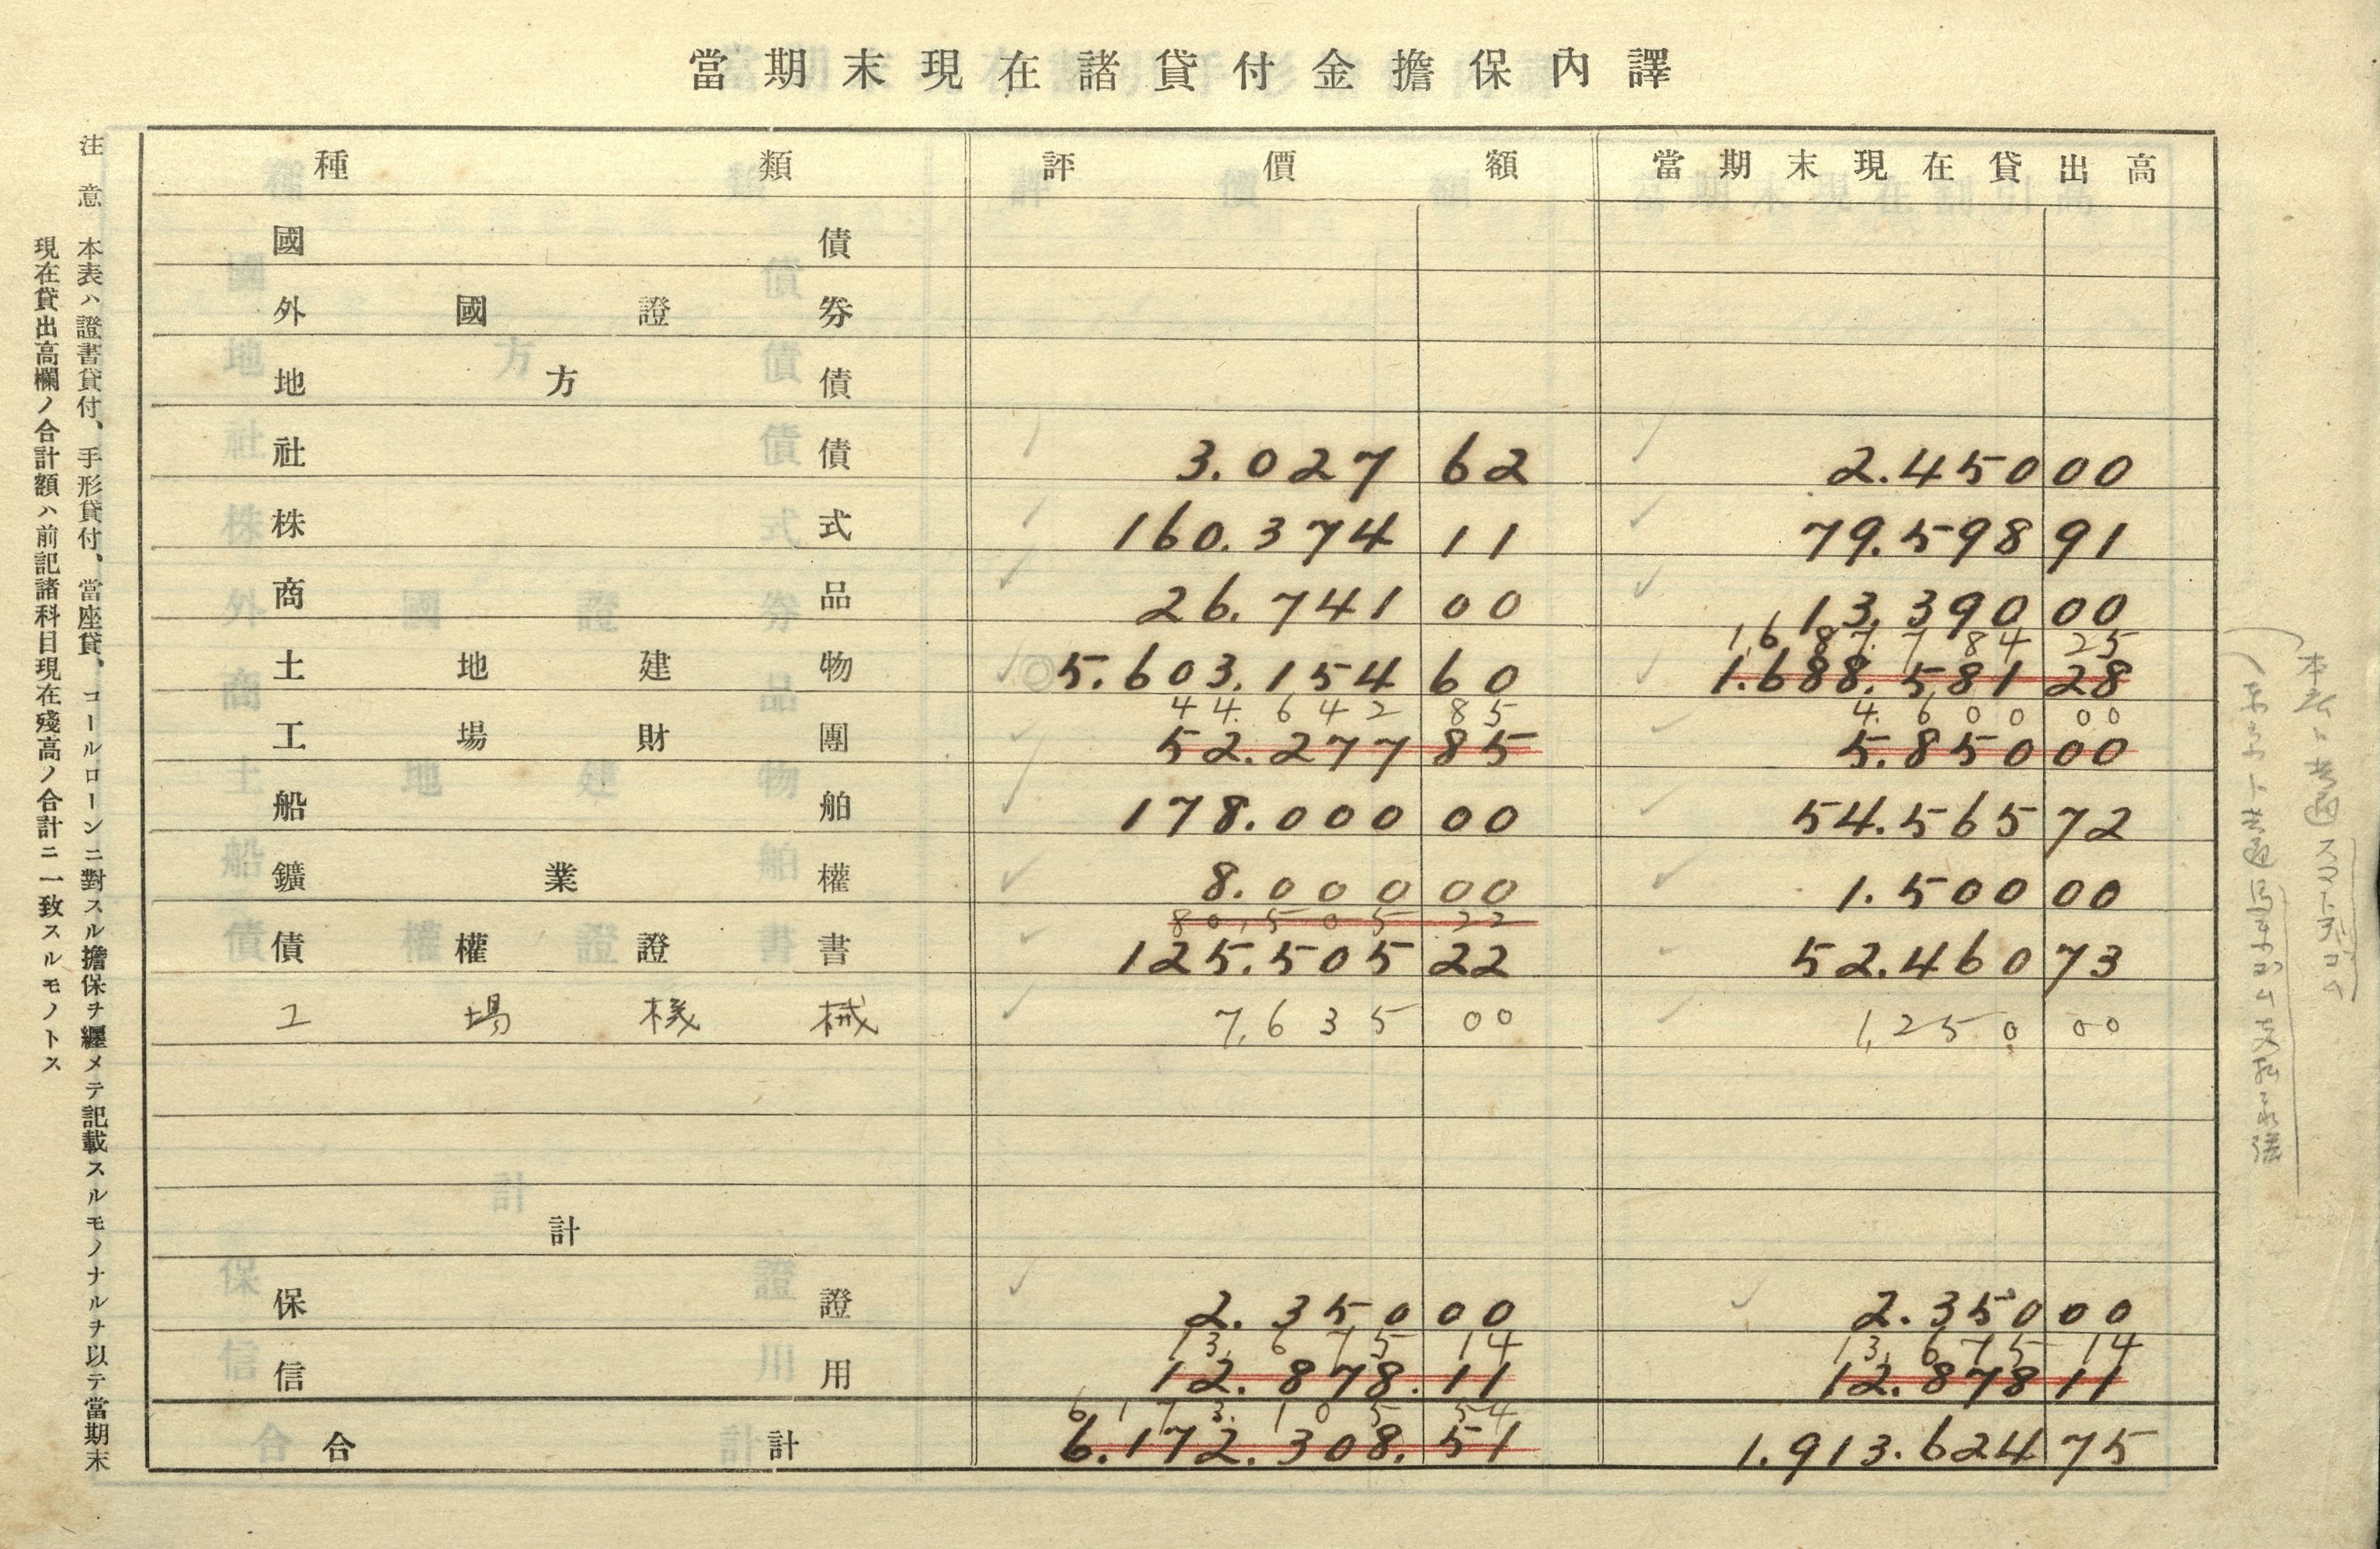 當期末現在諸貸付金擔保內譯
種類 評價額 當期末現在貸出高
國債
外國證券
地方債
社債 3.027 62 2.450 00
株式 160.374 11 79.598 91
商品 26.741 00 13.390 00
1,687.784 25
土地建物 5.603.154 60 1.688.581 28
44.642 85 4.600 00
工場財團 52.277 85 5.850 00
船舶 178.000 00 54.565 72
鑛業權 8.000 00 1.500 00
80,505 22
債權證書 125.505 22 52.460 73
工場機械 7,635 00 1,250 00
計
保證 2.350 00 2.350 00
13,675 14 13,675 14
信用 12.878.11 12.878 11
6173.105 54
合計 6.172.308.51 1.913.624 75
注意 本表ハ證書貸付、手形貸付、當座貸、コールローンニ對スル擔保ヲ纒メテ記載スルモノナルヲ以テ當期末
現在貸出高欄ノ合計額ハ前記諸科目現在殘高ノ合計ニ一致スルモノトス